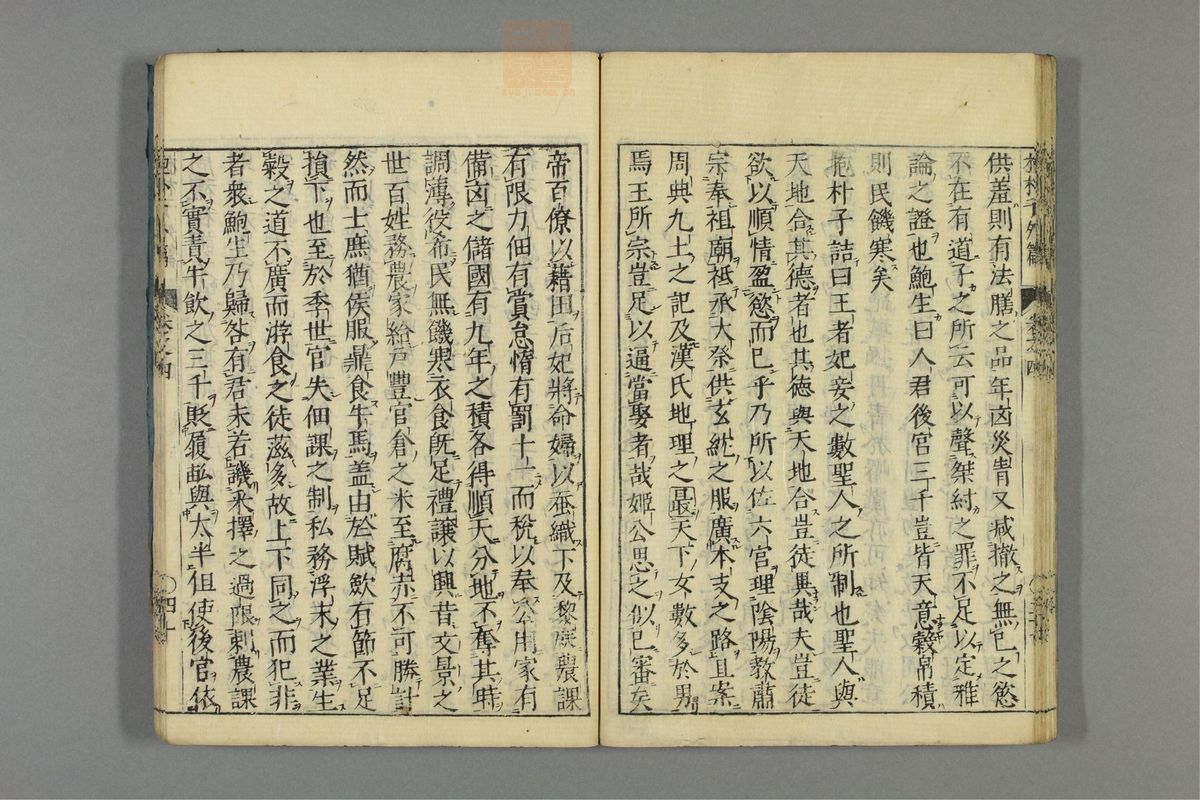 供羞則有法膳之品年凶災眚又減撤之無已之慾
不在有道子之所云可以聲桀紂之罪不足以定雅
論之證也鮑生曰人君後宮三千豈皆天意穀帛積
則民饑寒矣
抱朴子詰曰王者妃妾之數聖人之所制也聖人與
天地合其德者也其德與天地合豈徒異哉夫豈徒
欲以順情盈慾而已乎乃所以佐六宮理陰陽教肅
宗奉祖廟祗承大祭供玄紞之服廣本支之路且案
周典九土之記及漢氏地理之最天下女數多於男
焉王所宗豈足以逼當娶者哉姬公思之似已審矣
帝百僚以藉田后妃將命婦以蚕織下及黎庶農課
有限力佃有賞怠惰有罰十一而稅以奉公用家有
備凶之儲國有九年之積各得順天分地不奪其時
調薄役希民無饑寒衣食既足禮讓以興昔文景之
世百姓務農家給戶豐官倉之米至腐赤不可勝計
然而士庶猶侯服鼎食牛馬盖由於賦歛有節不足
損下也至於季世官失佃課之制私務浮末之業生
穀之道不廣而游食之徒滋多故上下同之而犯非
者衆鮑生乃歸咎有君未若譏采擇之過限刺農課
之不實責牛飲之三千貶履畝與太半但使後宮依